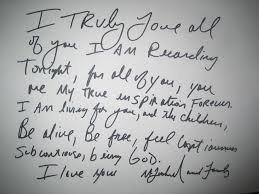 I TRuly Love all
of you I AM Recording
Tonight, for all of you, you
are My TRue inSPiRation FoReveR.
I Am living for you, and the children,
Be alive, Be free, feel
Subcontiouse, being GOD.
I love you and Family